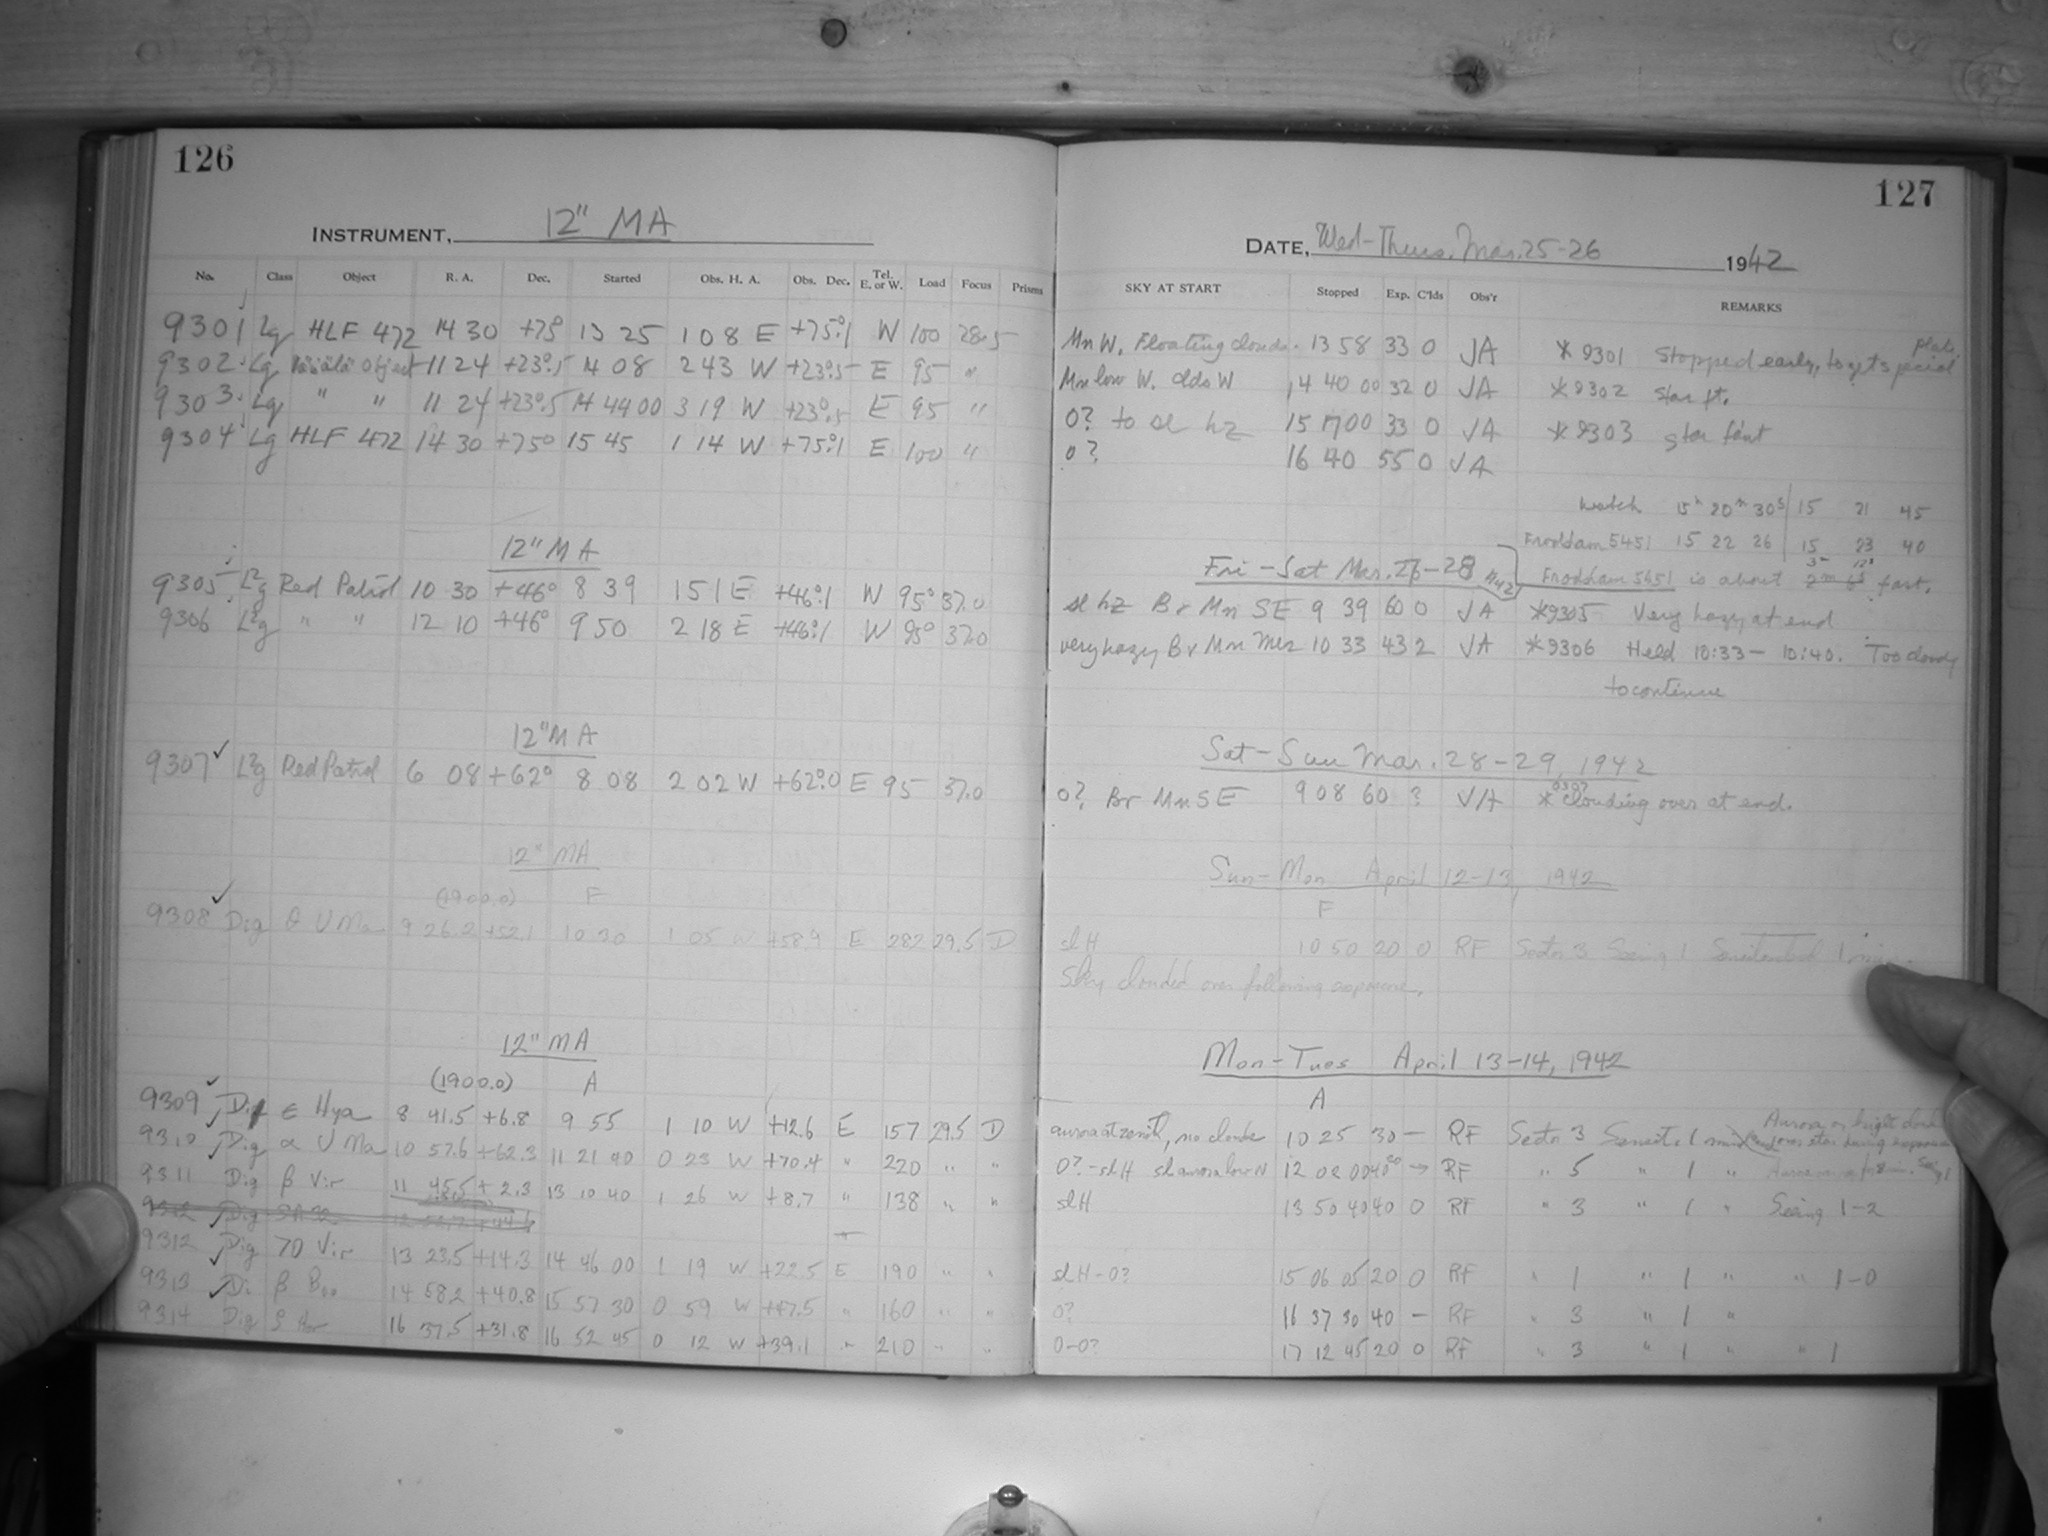 126
INSTRUMENT, 12" MA
No. Class Object R. A. Dec. Started Obs. H. A. Obs. Dec. Tel. E. or W. Load Focus Prisms
9301 Lg HLF 472 14 30 +75° 13 25 1 08 E +75°.1 W 100 28.5
9302 Lg Väisälä Object 11 24 +23°.5 14 08 2 43 W +23°.5 E 95 "
9303 Lg " " 11 24 +23°.5 14 44 00 3 19 W +23°.5 E 95 "
9304 Lg HLF 472 14 30 +75° 15 45 1 14 W +75°.1 E 100 "
12" MA
9305 Red Patrol 10 30 +46° 8 39 1 51 E +46°.1 W 95° 37.0
9306 " " 12 10 +46° 9 50 2 18 E +46°.1 W 95° 37.0
12" MA
9307 ✓ Red Patrol 6 08 +62° 8 08 2 02 W +62°.0 E 95 37.0
12" MA
(1900.0) F
9308 ✓ Dig θ U Ma 9 26.2 +52.1 10 30 1 05 W +58.9 E 282 29.5 D
12" MA
(1900.0) A
9309 ✓ Dig ε Hya 8 41.5 +6.8 9 55 1 10 W +12.6 E 157 29.5 D
9310 ✓ Dig α U Ma 10 57.6 +62.3 11 21 40 0 23 W +70.4 " 220 " "
9311 Dig β Vir 11 45.5 +2.3 13 10 40 1 26 W +8.7 " 138 " "
9312 Dig
9312 Dig 70 Vir 13 23.5 +14.3 14 46 00 1 19 W +22.5 E 190 " "
9313 Di β Boo 14 58.2 +40.8 15 57 30 0 59 W +47.5 " 160 " "
9314 Dig 16 37.5 +31.8 16 52 45 0 12 W +39.1 " 210 " "
127
DATE, Wed-Thurs. Mar. 25-26 1942
SKY AT START Stopped Exp. C'lds Obs'r REMARKS
Mn W. Floating clouds. 13 58 33 0 JA * 9301 Stopped early, to get special plate
Mn low W. clds W 14 40 00 32 0 JA * 9302 star ft.
0? to sl hz 15 17 00 33 0 JA * 9303 star faint
0? 16 40 55 0 JA
Watch 15h 20m 30s 15 21 45
Frodsham 5451 15 22 26 15 23 40
Fri-Sat Mar. 28 1942 Frodsham 5451 is about fast.
sl hz Br Mn SE 9 39 60 0 JA *9305 Very hazy at end
very hazy Br Mn Mer 10 33 43 2 JA *9306 Held 10:33 - 10:40. Too cloudy
to continue
Sat-Sun Mar. 28-29, 1942
0? Br Mn SE 9 08 60 ? JA * 9307 Clouding over at end.
Sun-Mon April 12-13, 1942
F
sl H 10 50 20 0 RF Sector 3 Seeing 1 1 min.
Sky clouded over following exposure.
Mon-Tues April 13-14, 1942
A
aurora at zenith, no clouds 10 25 30 - RF Sector 3 1 min Aurora or bright cloud over star during exposure
0?-sl H sl aurora low N 12 02 00 40 RF " 5 " 1 "
sl H 13 50 40 40 0 RF " 3 " 1 " Seeing 1-2
sl H-0? 15 06 05 20 0 RF " 1 " 1 " " 1-0
0? 16 37 30 40 - RF " 3 " 1 "
0-0? 17 12 45 20 0 RF " 3 " 1 " " 1